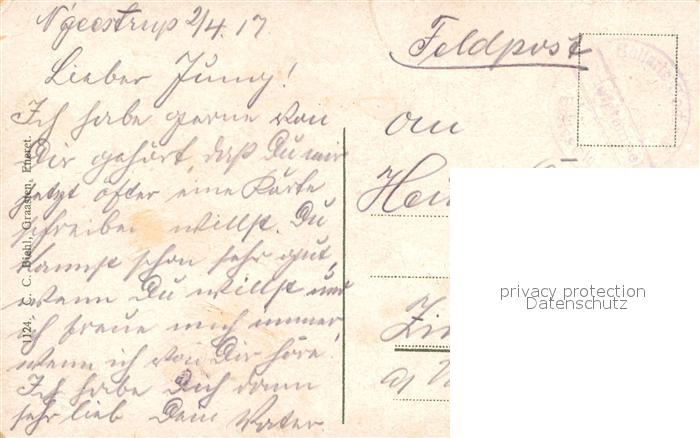 2/4.17
Lieber Jung!
Ich habe gerne von
Dir gehört, daß Du mir
jetzt öfter eine Karte
schreiben willst. Du
kannst schon sehr gut,
wenn Du willst und
ich freue mich immer,
wenn ich von Dir höre.
Ich habe Dich dann
sehr lieb Dein Vater.
1124. C. C. Biehl, Graasten. Eneret.
Feldpost
an
privacy protection
Datenschutz